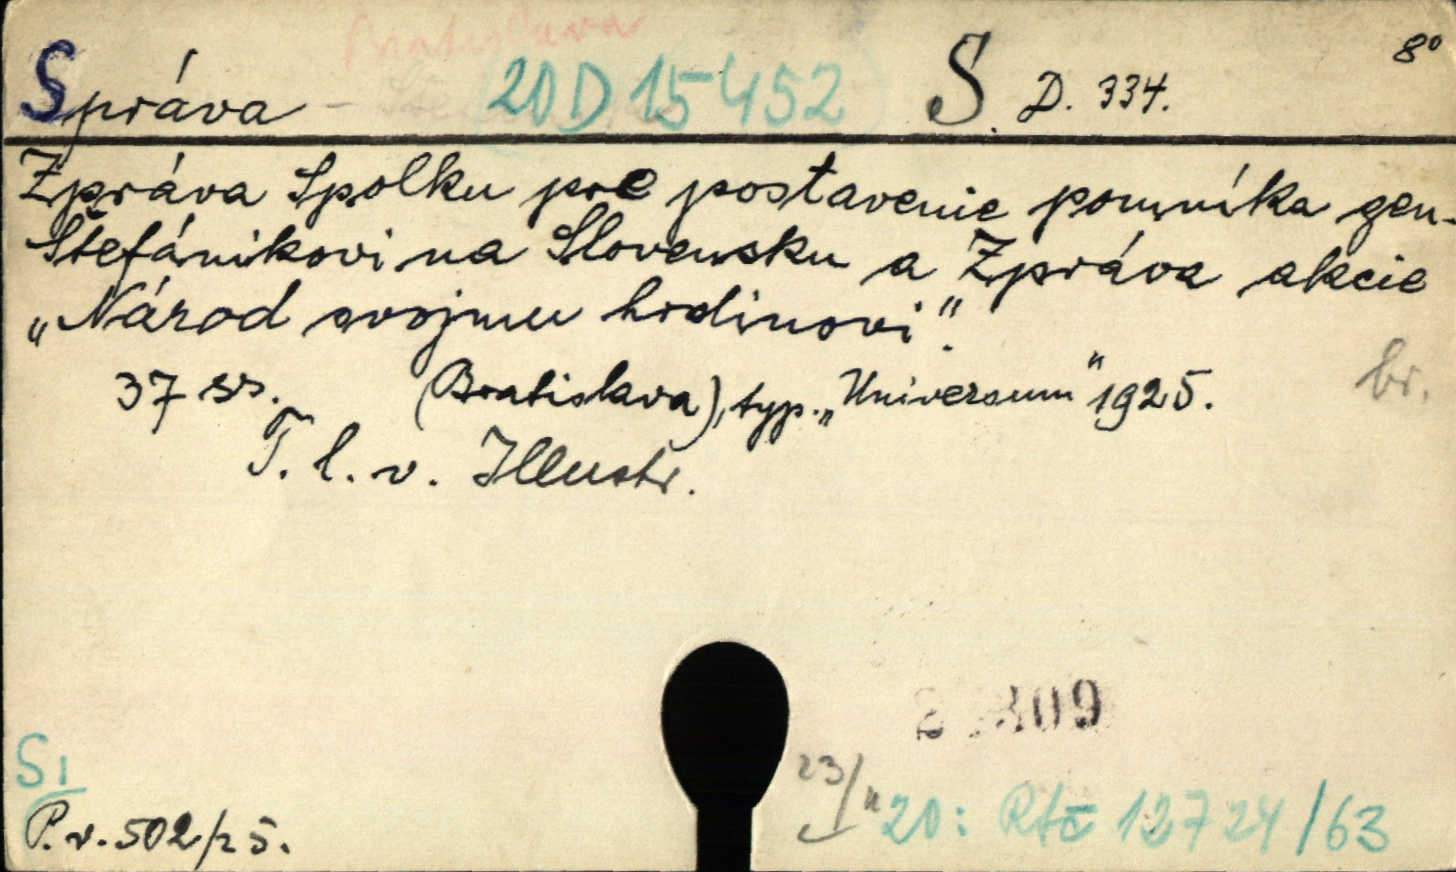 Bratislava
Správa 20D 15452 S. D. 334. 8°
Zpráva Spolku pre postavenie pomníka gen.
Štefánikovi na Slovensku a Zpráva akcie
„Národ svojmu hrdinovi".
37 ss. (Bratislava), typ. „Universum" 1925. br.
T. l. v. Illustr.
09
S1
23/
P. v. 502/25. 20: Rtč 12724/63